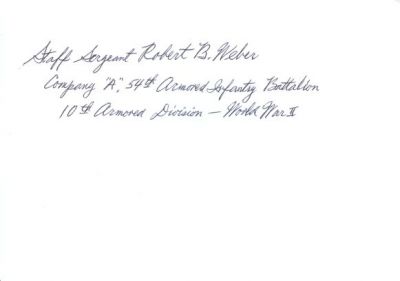 Staff Sergeant Robert B. Weber
Company "A", 54th Armored Infantry Battalion
10th Armored Division — World War II